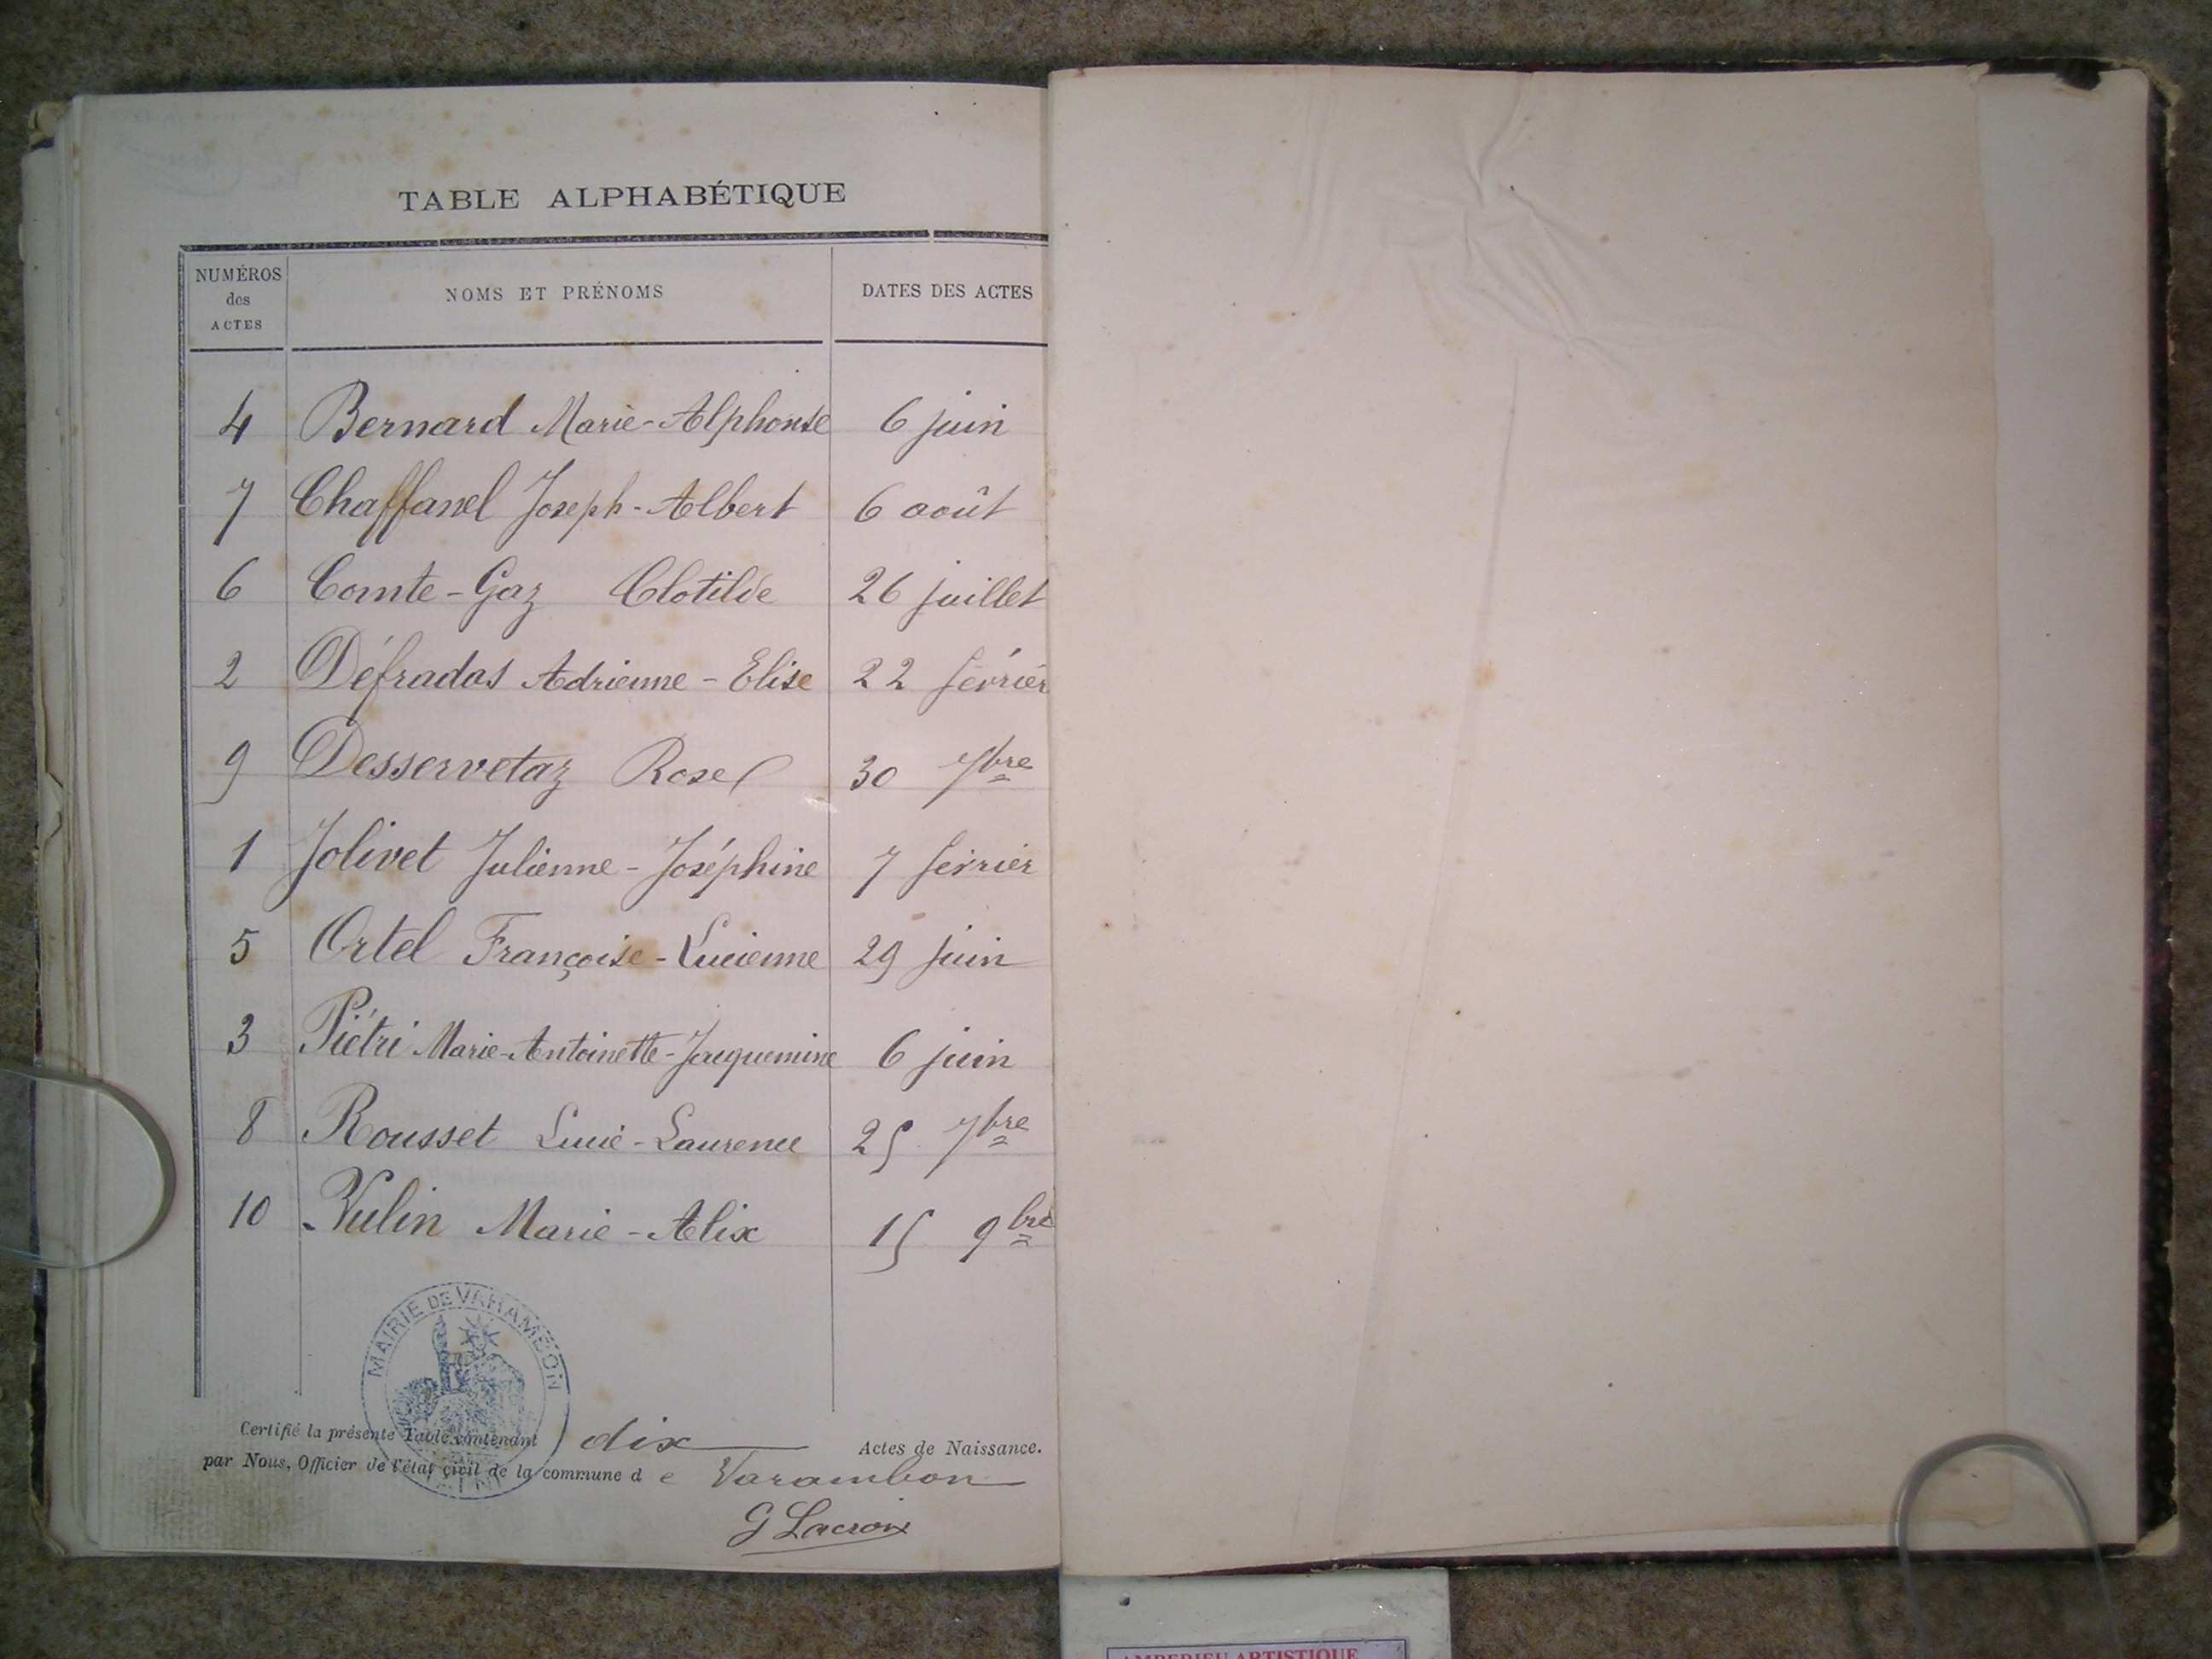 TABLE ALPHABÉTIQUE
NUMÉROS
des
ACTES
NOMS ET PRÉNOMS
DATES DES ACTES
4 Bernard Marie-Alphonse 6 juin
7 Chaffanel Joseph-Albert 6 août
6 Comte-Gaz Clotilde 26 juillet
2 Défradas Adrienne-Elise 22 février
9 Desservetaz Rose 30 7bre
1 Jolivet Julienne-Joséphine 7 février
5 Ortel Françoise-Lucienne 29 juin
3 Piétri Marie-Antoinette-Jacquemine 6 juin
8 Rousset Lucie-Laurence 25 7bre
10 Vulin Marie-Alix 15 9bre
MAIRIE DE VARAMBON
AIN
Certifié la présente Table contenant dix Actes de Naissance.
par Nous, Officier de l'état civil de la commune d e Varambon
G Lacroix
AMBERIEU ARTISTIQUE